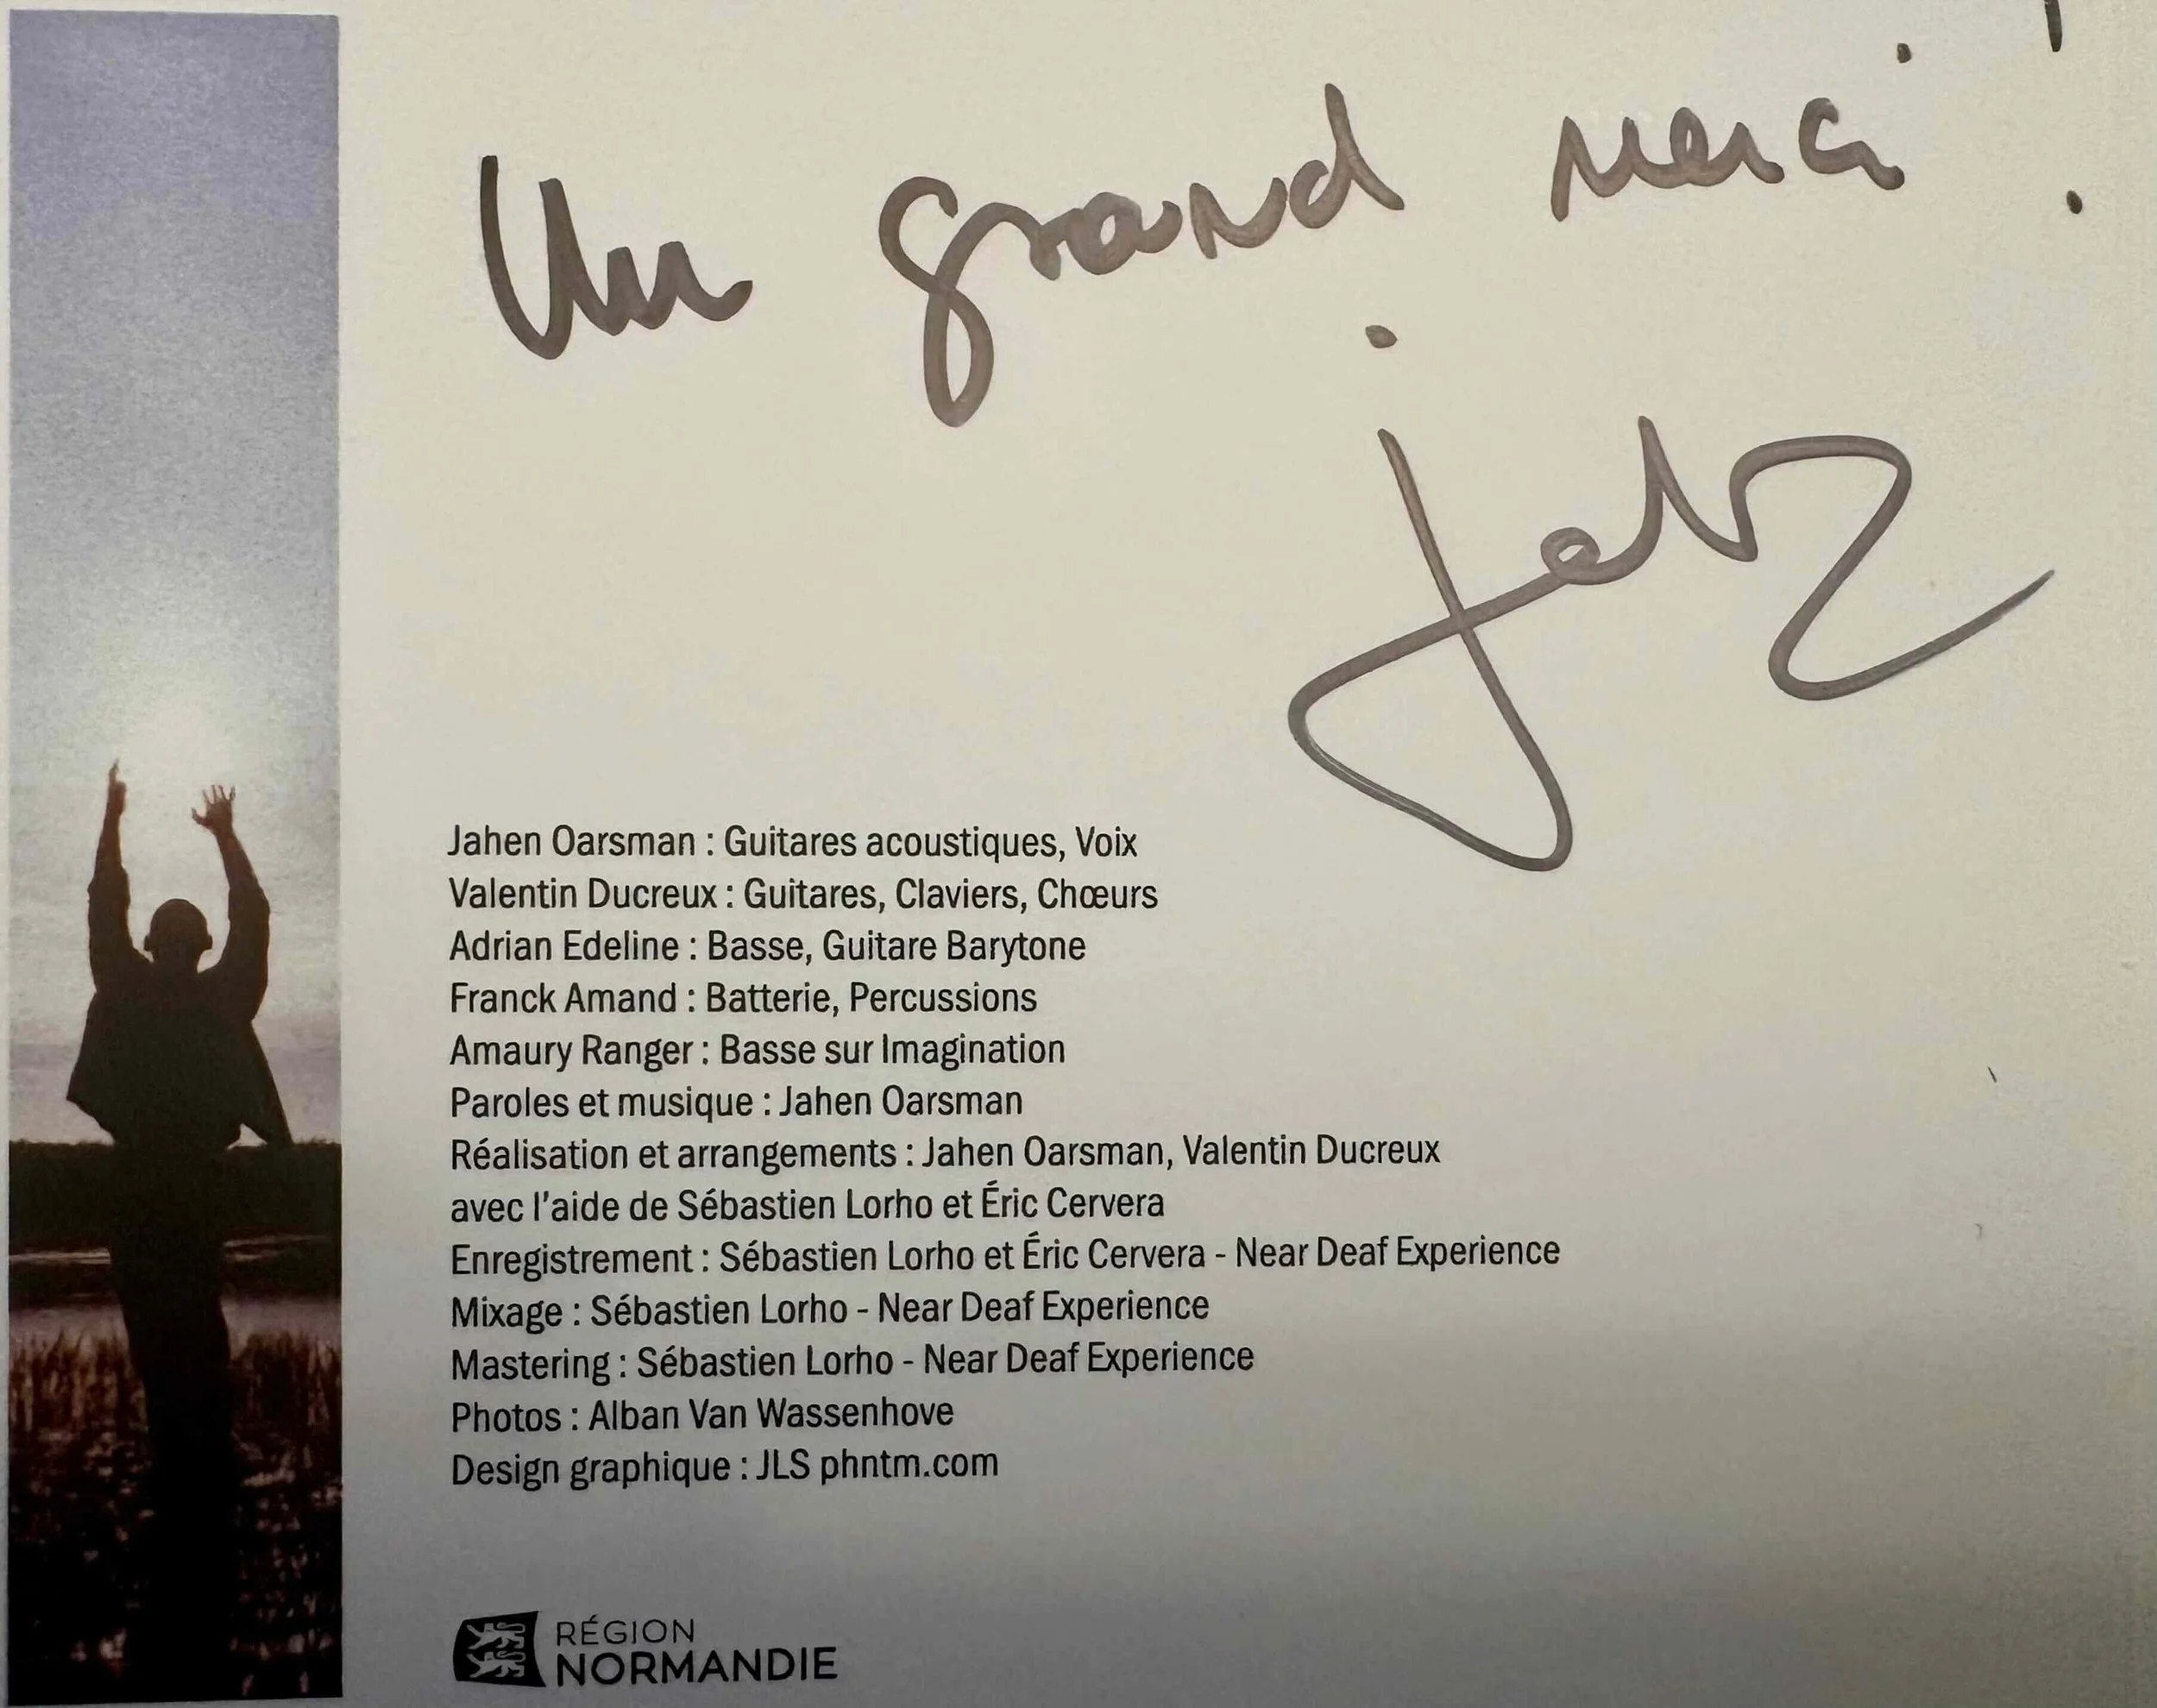 Un grand merci !
Jahen Oarsman : Guitares acoustiques, Voix
Valentin Ducreux : Guitares, Claviers, Chœurs
Adrian Edeline : Basse, Guitare Barytone
Franck Amand : Batterie, Percussions
Amaury Ranger : Basse sur Imagination
Paroles et musique : Jahen Oarsman
Réalisation et arrangements : Jahen Oarsman, Valentin Ducreux
avec l'aide de Sébastien Lorho et Éric Cervera
Enregistrement : Sébastien Lorho et Éric Cervera - Near Deaf Experience
Mixage : Sébastien Lorho - Near Deaf Experience
Mastering : Sébastien Lorho - Near Deaf Experience
Photos : Alban Van Wassenhove
Design graphique : JLS phntm.com
RÉGION
NORMANDIE